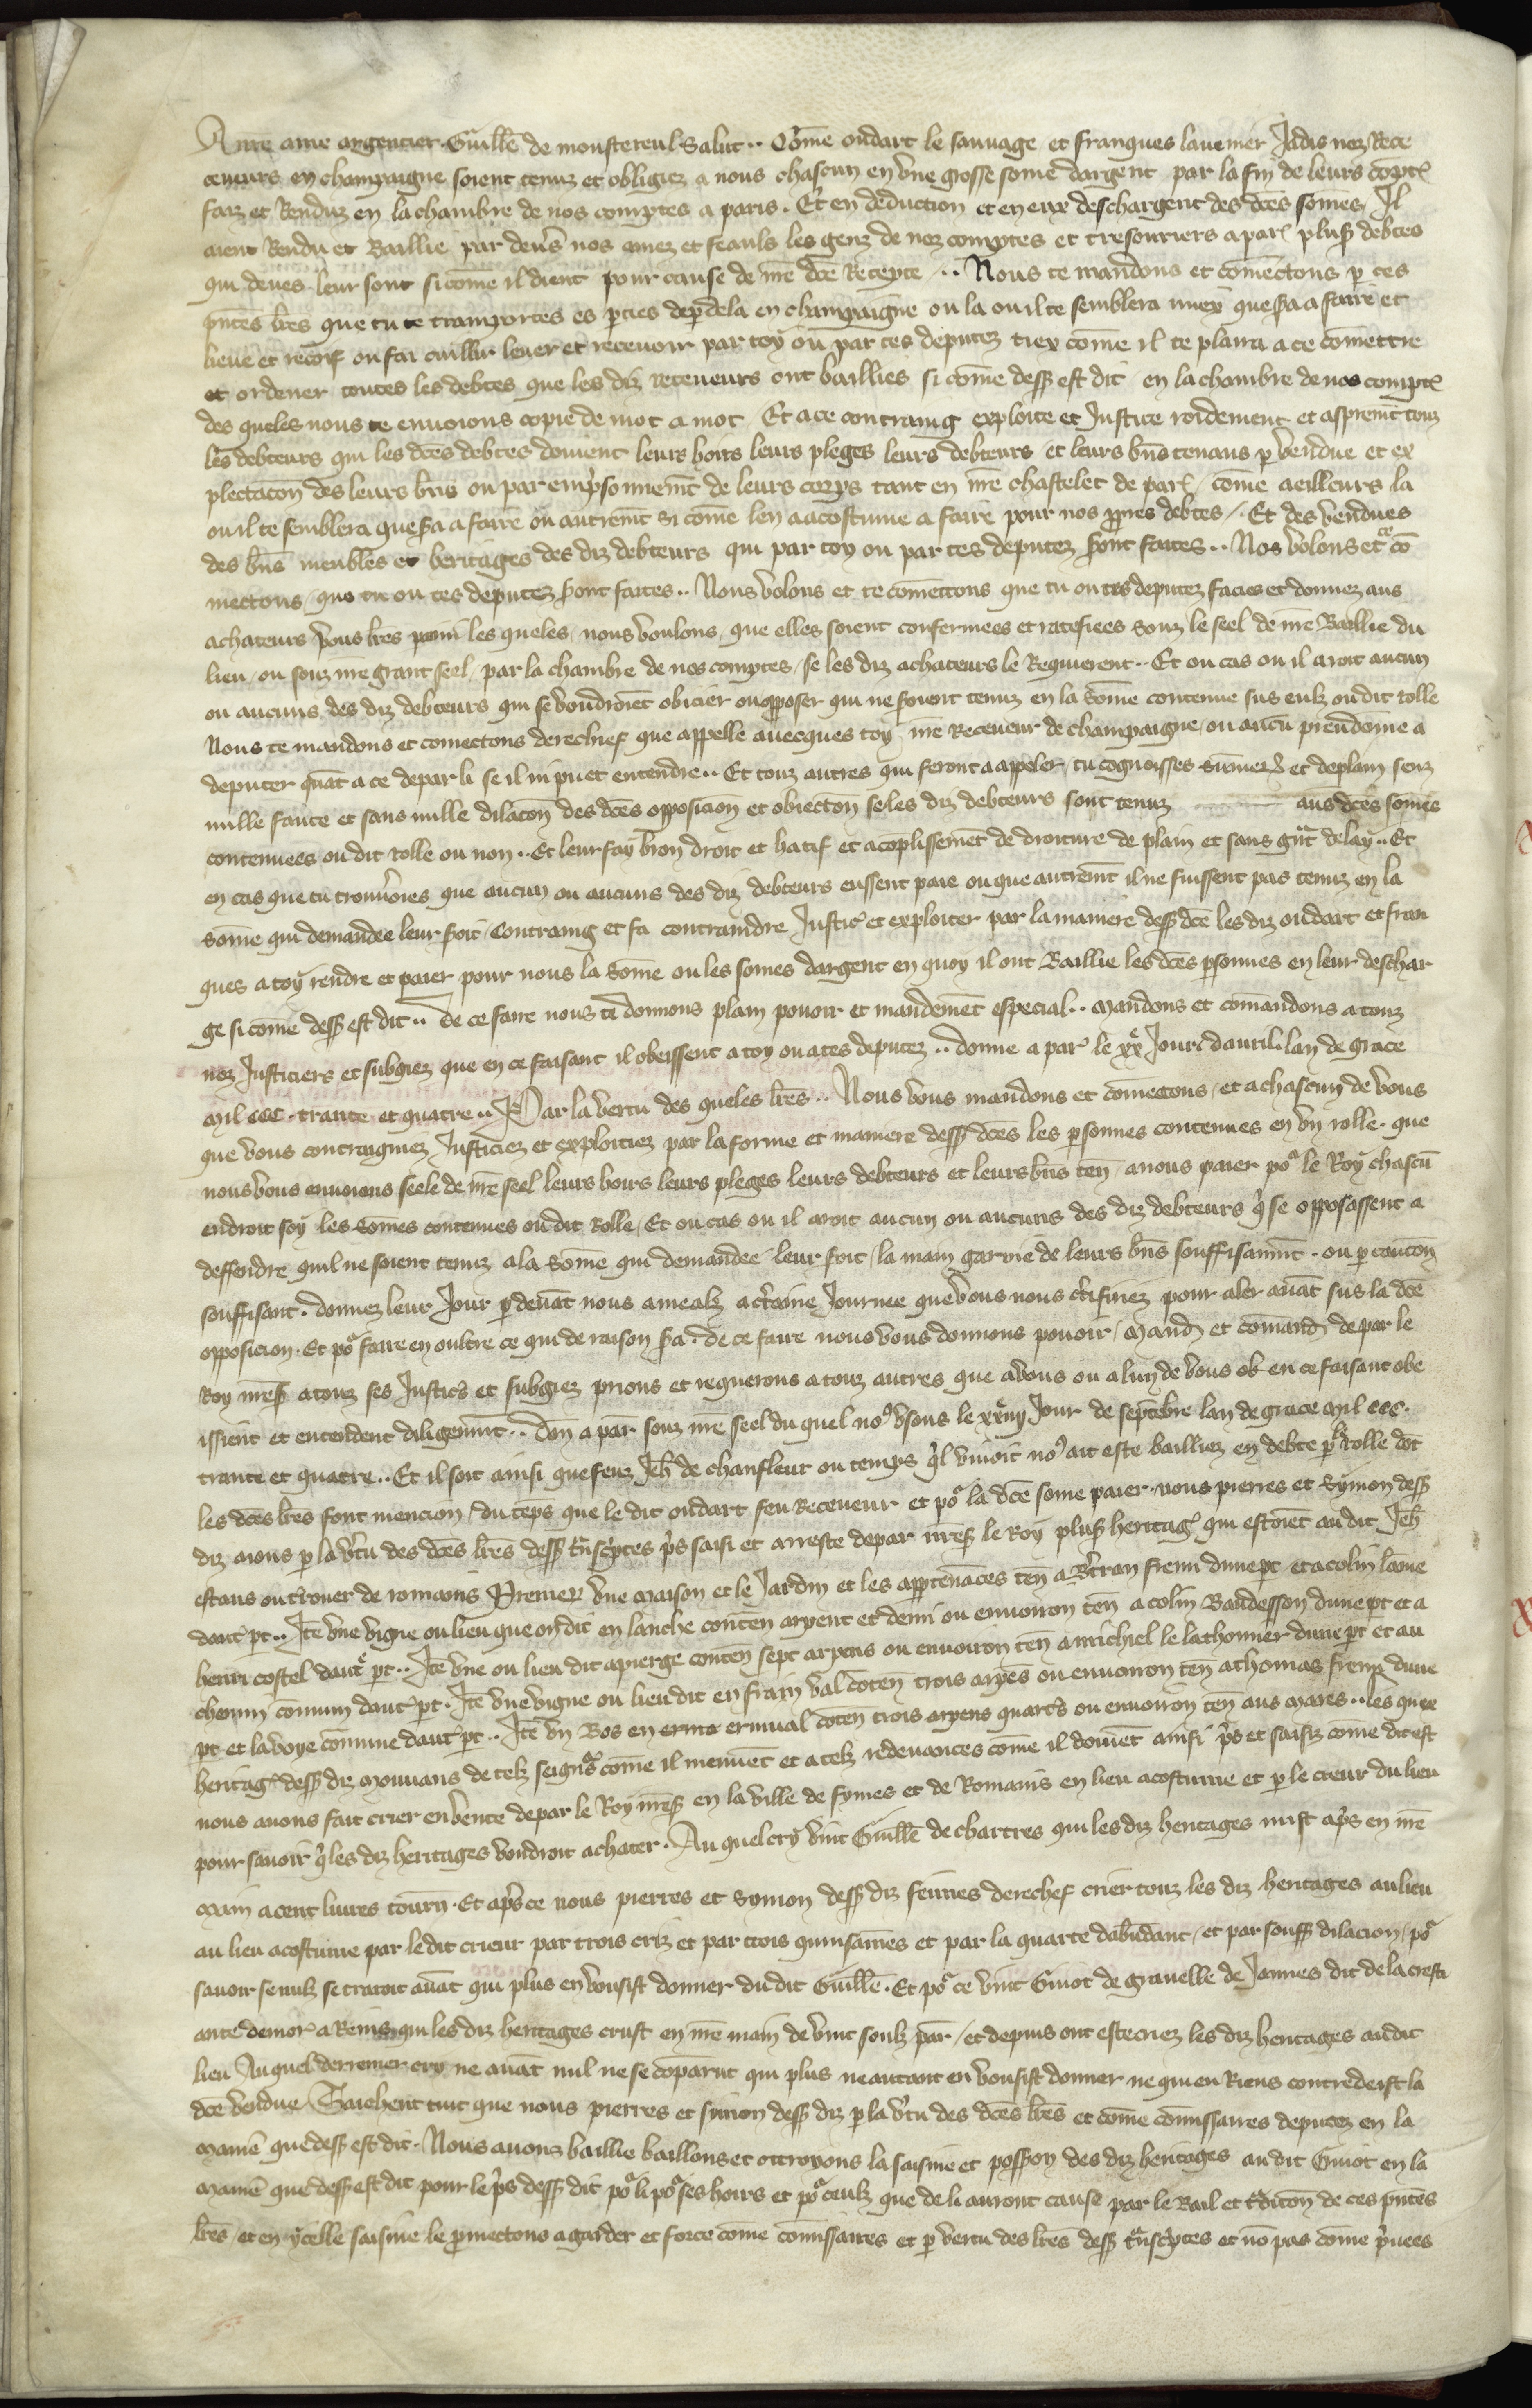 A nre ame argentier Guille de monstereul Salut .. Come oudart le sauvage et franques lauemer Jadis nez Rece
ceveurs en champaigne soient tenuz et obligiez a nous chascun en vne grosse some dargent par la fin de leurs compt
faiz et Renduz en la chambre de nos comptes a paris . Et en deduction et en eux deschargent des dces somes Il
aient Rendu et Baillie par devs nos amez et feauls les genz de noz comptes et tresouriers a par plus debtes
qui deues leur sont si come il dient pour cause de nre dce Recepte .. Nous te mandons et comectons p ces
pntes lres que tu te transportes es pties dep dela en champaigne ou la ou il te semblera miex que sa a faire et
lieue et recoif ou fai cuillir lever et recevoir par toy ou par tes deputez tiex come il te plaira a ce comettre
et ordener toutes les debtes que les diz receveurs ont baillies si come dess est dit en la chambre de nos compt
des queles nous te envoions copie de mot a mot Et a ce contraing exploite et Justice roidement et asprement touz
les debteurs qui les dces debtes doivent leurs hoirs leurs pleges leurs debteurs et leurs bns tenans p vendue et ex
plectacon des leurs bns ou par emprisonnemt de leurs corps tant en nre chastelet de par come ailleurs la
ou il te semblera que sa a faire ou autremt si come len a acostume a faire pour nos ppres debtes . Et des vendues
des bns meubles et heritages des diz debteurs qui par toy ou par tes deputez sont faites .. Nos volons et te co
mectons que tu ou tes deputez sont faites .. Nous volons et te comettons que tu ou tes deputez facies et donnez aus
achateurs vous lres parmi les queles nous voulons que elles soient confermees et ratefiees souz le seel de nre Baillie du
lieu ou souz nre grant seel par la chambre de nos comptes se les diz achateurs le Requierent .. Et ou cas ou il aroit aucun
ou aucuns des diz debteurs qui se voudroiet obicier ou opposer qui ne soient tenuz en la some contenue sus eulz ou dit rolle
Nous te mandons et comectons derechief que appelle avecques toy nre Receveur de champaigne ou aucu preudome a
deputer quat a ce depar li se il ni puet entendre .. Et touz autres qui feront a appeler tu cognoisses sumer et de plain senz
nulle faute et sans nulle dilacon des dces opposicion et obiection se les diz debteurs sont tenuz aus dces somes
contenuees ou dit rolle ou non .. Et leur fay bon droit et hatif et acoplissemet de droiture de plain et sans gnt delay .. Et
en cas que tu trouvoies que aucun ou aucuns des diz debteurs eussent paie ou que autremt il ne fuissent pas tenuz en la
some qui demandee leur soit contraing et fa contraindre Justic et exploiter par la maniere dess dce les diz oudart et fran
ques a toy rendre et paier pour nous la some ou les somes dargent en quoy il ont Baillie les dces psonnes en leur deschar
ge si come dess est dit .. De ce faire nous ti donnons plain povoir et mandemet especial .. Mandons et comandons a touz
nez Justiciers et subgiez que en ce faisant il obeissent a toy ou a tes deputez .. donne a par le xx Jour davril lan de grace
Mil ccc . trante et quatre .. Par la vertu des queles lres .. Nous vous mandons et comectons et a chascun de vous
que vous contraigniez Justiciez et exploitiez par la forme et maniere dess dces les psonnes contenues en vn rolle . que
nous vous envoions seele de nre seel leurs hoirs leurs pleges leurs debteurs et leurs bns ten a nous paier po le Roy chascu
endroit soy les somes contenues ou dit Rolle Et ou cas ou il aroit aucun ou aucuns des diz debteurs q se opposassent a
deffendre quil ne soient tenuz a la some qui demandee leur soit la main garnie de leurs bns souffisammt . ou p caucon
souffisant . donnez leur Jour p devat nous a meaulz a ctaine Journee que vous nous ctifiriez pour aler avat sus la dce
opposicion . Et po faire en oultre ce qui de raison sa . de ce faire nous vous donnons povoir / Mand et comand de par le
Roy nres a touz ses Justics et subgiez prions et requerons a touz autres que a vous ou a lun de vous ob en ce faisant obe
issient et entendent diligemt .. Don a par souz nre seel du quel nos vsons le xxiiij Jour de septebre lan de grace Mil ccc .
trante et quatre .. Et il soit ainsi que feuz Jeh de chanfleur ou temps ql vivoit nos ait este bailliez en debte p le rolle dot
les dces lres font mencion / du teps que le dit oudart feu Receveur et po la dce some paier . nous pierres et Symon dess
diz avons p la vtu des dces lres dess tnscptes ps saisi et arreste depar nres le Roy plus heritag qui estoiet au dit Jeh
estans ou trouer de romains Premier vne Maison et le Jardin et les appten­aces ten a Btran fremi dune pt et a colin lame
daut pt .. Ite vne vigne ou lieu que on dit en lanche conten arpent et demi ou environ ten a colin Baudesson dune pt et a
henri costel daut pt .. Ite vne ou lieu dit a pierge conten sept arpens ou environ ten a michiel le lathonnier dune pt et au
chemin comun daut pt . Ite vne vigne ou lieu dit en frain val coten trois arpes ou environ ten a thomas fremi dune
pt et la voye comune daut pt .. Ite vn Bos en ermival coten trois arpens quarts ou environ ten aus Mares .. les quex
heritag dess diz Mouvans de telz seigns come il mevuet et a telz redevances come il doivet ainsi ps et saisiz come dit est
nous avons fait crier en vente depar le Roy nres en la ville de fymes et de Romains en lieu acostume et p le crieur du lieu
pour savoir q les diz heritages voudroit achater . Au quel cry vint Guille de chartres qui les diz heritages mist a ps en nre
Main a cent livres tourn . Et aps ce nous pierres et Symon dess diz feimes derechef crier touz les diz heritages au lieu
au lieu acostume par le dit crieur par trois criz et par trois quinsaines et par la quarte dabudant et par souff dilacion / po
savoir se nulz se trairoit avat qui plus en vousist donner du dit Guille . Et po ce vint Guiot de gravelle de Jannes dit de la cresti
ante demor a Reins qui les diz heritages crust en nre main de vint soulz par / et depuis ont este criez les diz heritages au dit
lieu Au quel derremer cry ne avat nul ne se coparut qui plus ne autant en vousist donner ne qui en Riens contredeist la
dce vendue Saichent tuit que nous pierres et symon dess diz p la vtu des dces lres et come comissaires deputez en la
Manie que dess est dit . Nous avons baillie baillons et ottroyons la saisine et possion des diz heritages au dit Guiot en la
Manie que dess est dit pour le ps dess dit po li po ses hoirs et po ceulz que de li auront cause par le Bail et tdicon de ces pntes
lres et en ycelle saisine le pmectons a garder et force come comissaires et p vertu des lres dess tnscptes et no pas come pvees